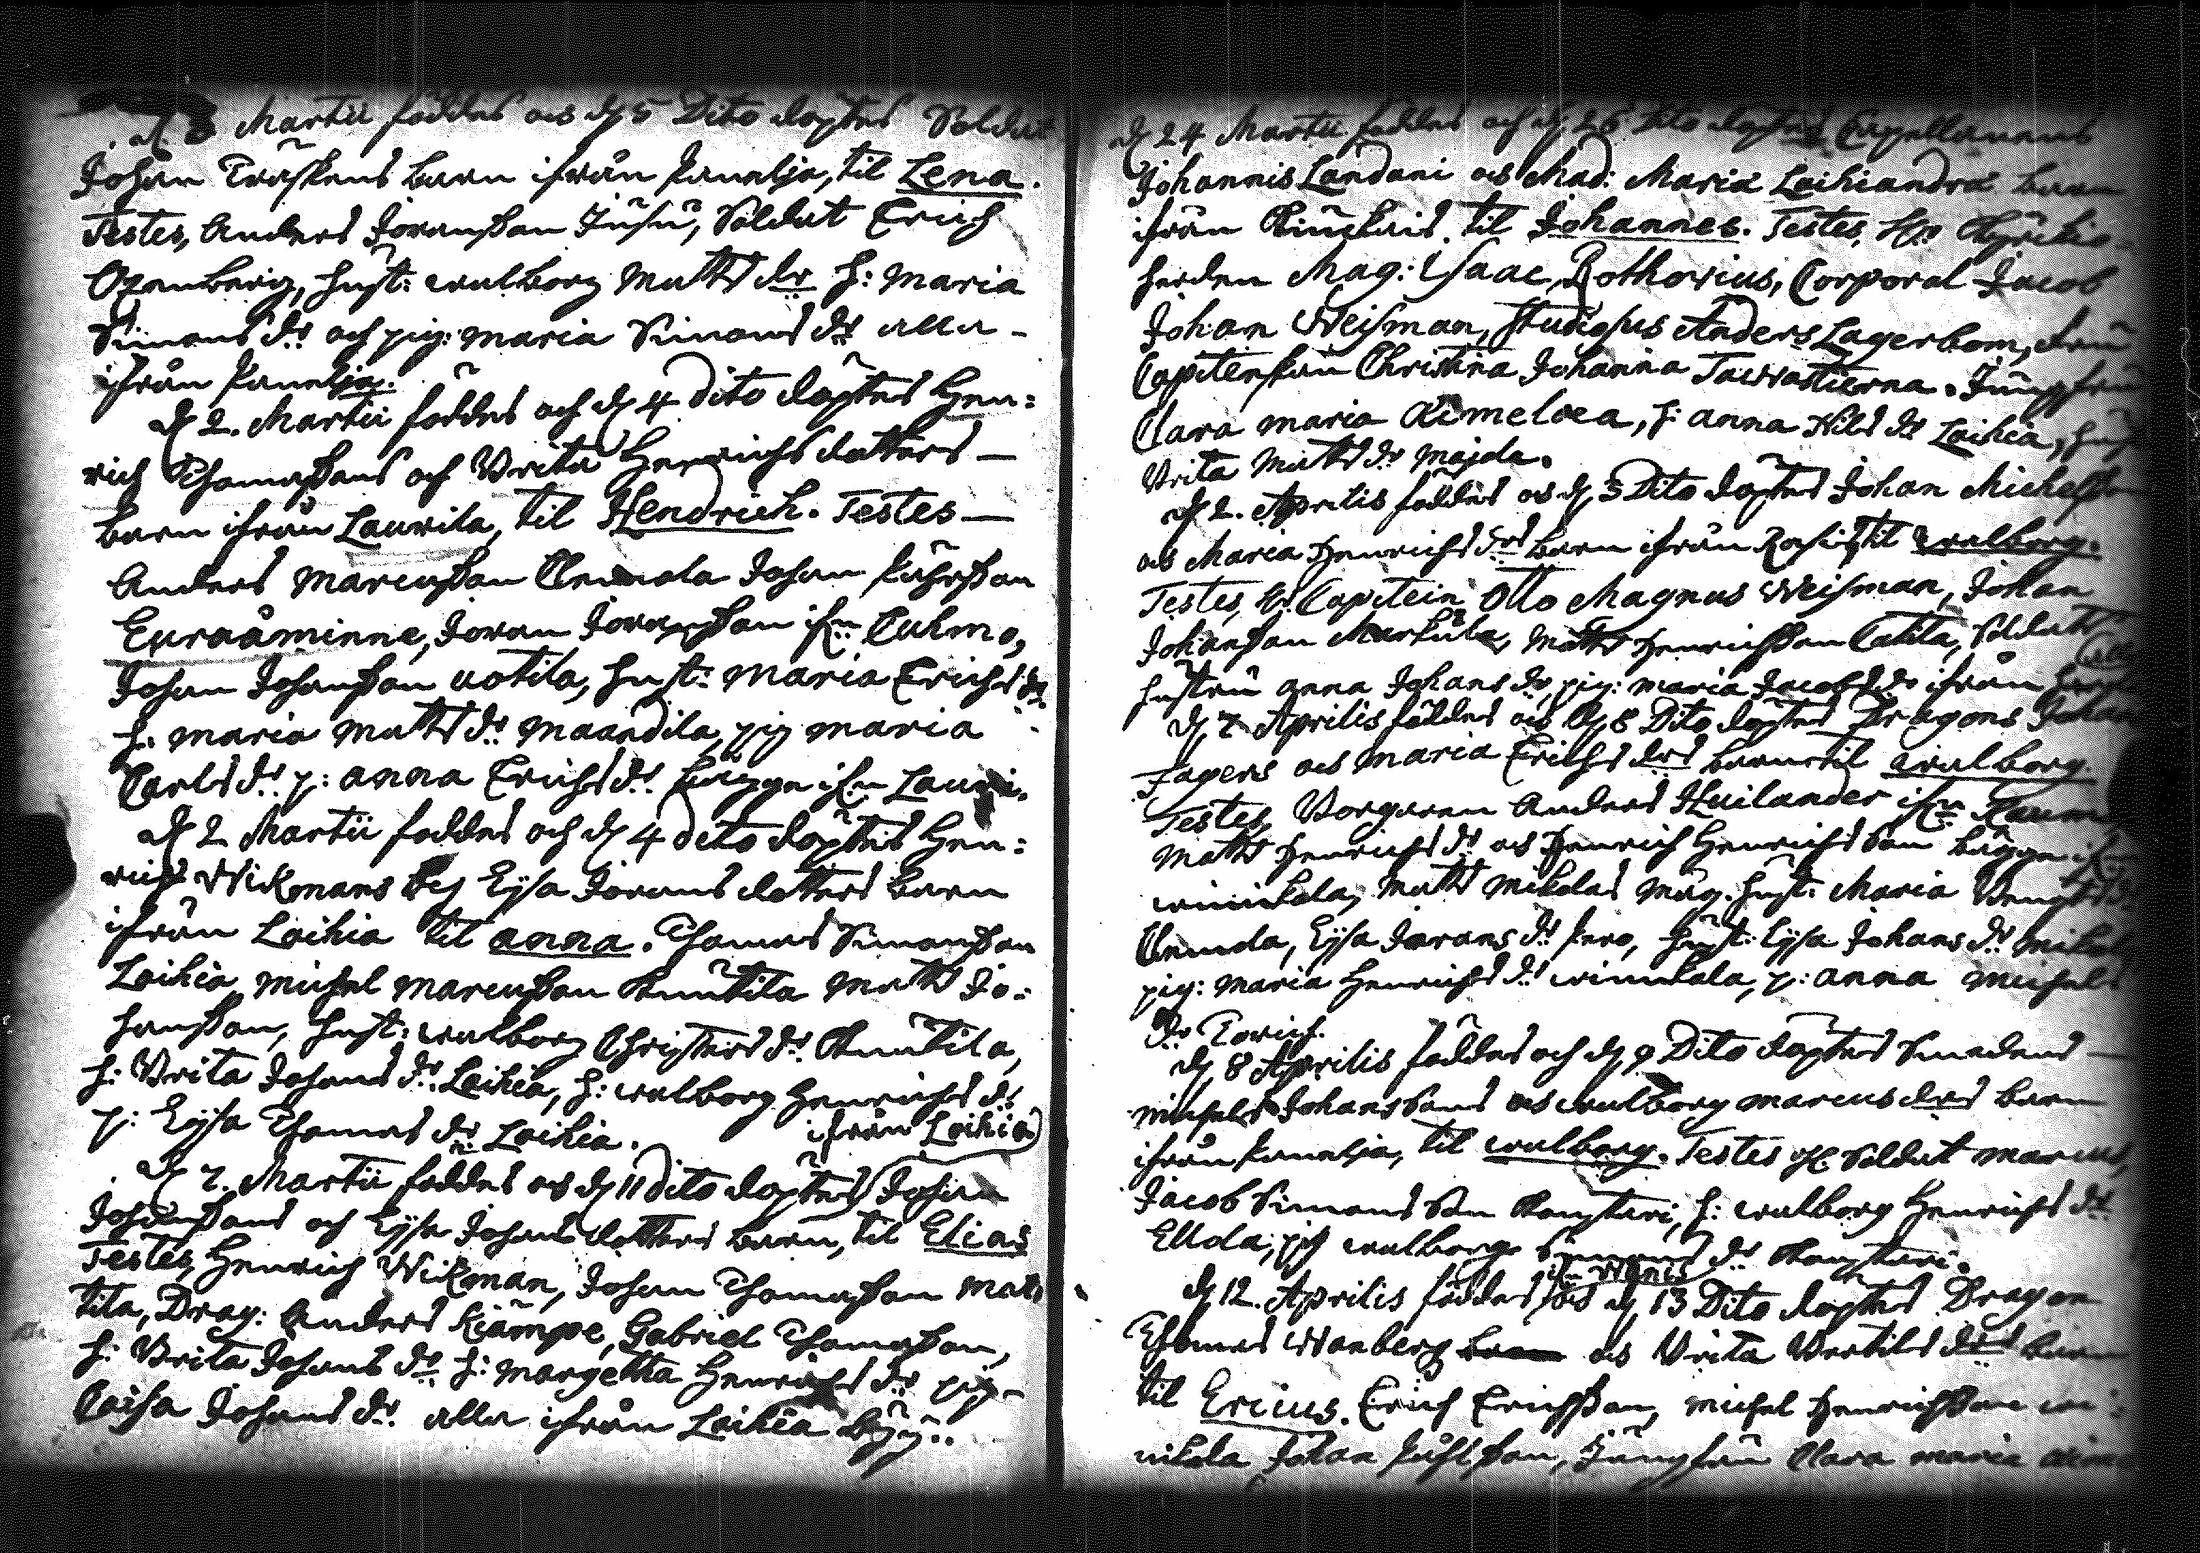 d. 3 Martii föddes och d. 5 Dito döptes Soldat
Johan Träskens barn ifrån Panelja, til Lena.
Testes, Anders Joransson Jusu, Soldat Erich
Openberg, hust: walborg Matts dr h: Maria
Simons dr och pig: maria Simons dr alla
ifrån Panelja.
d 2. Martii föddes och d 4 dito döptes Hen:
rich Thomassons och Brita Henrichs dotters
barn ifrån Laurila, til Hendrich. Testes
Anders Marcusson Johan Påhlsson
Euraåminne, Joran Joransson ifrn Cuhmo,
Johan Johansson uotila, hust: Maria Erichs dr
h. maria Matts dr maandila, pig maria
Carls dr p: anna Erichs dr bägge ifrn Lauri.
d 2 Martii föddes och d 4 dito döptes Hen:
rich Wickmans och Eysa Jorans dotters barn
ifrån Laihia til anna. Thomas Simonsson
Laihia, michel marcusson Knutila Matts Jo:
hansson, hust: walborg Christers dr Knutila,
h: Brita Johans dr Laihia, h: walborg Henrichs dr
p: Eysa Thomas dr Laihia. ifrån Laihia
d 7. Martii föddes och d 11 dito döptes Johan
Johanssons och Eysa Johans dotters barn, til Elias
Testes, Henrich Wickman, Johan Thomasson Mat
tila, Drag: Anders Kiämpe, Gabriel Thomasson,
h: Brita Johans dr h: margetta Henrichs dr pig
Caisa Johans dr. alla ifrån Laihia by.
d 24 Martii föddes och d 26 Dito döptes Capellanens
Johannis Landani och Mad: Maria Laihiandra barn
ifrån til Johannes. Testes, Hr Kyrckio
herden Mag: Isaac Rothovius, Corporal Jacob
Johan Weisman, Studiosus Anders Lagerbom, fru
Capitenskan Christina Johanna Tawastierna. Jungfru
Clara maria Aimelæa, h: anna Nils dr Laihia, hust
Brita Matts dr majda.
d 2. Aprilis föddes och d 3 Dito döptes Johan Michelssons
och Maria Henrichs drs barn ifrån til walborg.
Testes, Hr Capitein Otto Magnus Weisman, Johan
Johansson Markula, Matts Henrichsson Catila, Soldats
hustru anna Johans dr, pig: maria Jacobs dr ifrån
d 7 Aprilis föddes och d 8 Dito döptes Dragons Johan
Fagers och maria Erichs drs barn til walborg.
Testes, Borgaren Anders Huilander ifrn Raum
Matts Henrichs dr och Henrich Henrichs Son bägge
winikala, Matts mikolas måg. hust: Maria Bengts
Eysa Jorans dr Pero, hust: Eysa Johans dr
pig: maria Henrichs dr winikala, p: anna Michels
dr
d 8 Aprilis föddes och d 9 Dito döptes Smedens
michels Johanssons och walborg marcus drs barn
ifrån Panelja, til walborg. Testes Soldat marcus,
Jacob Simons Son h: walborg Henrichs dr
Ellola, pig walborg Simons dr
d 12. Aprilis föddes och d 13 Dito döptes Dragon
Thomas Wanberg och Brita Bertils drs barn
til Ericus. Erich Erichsson, michel Henrichsson wi
nikala Johan Påhlsson, Jungfru Clara maria